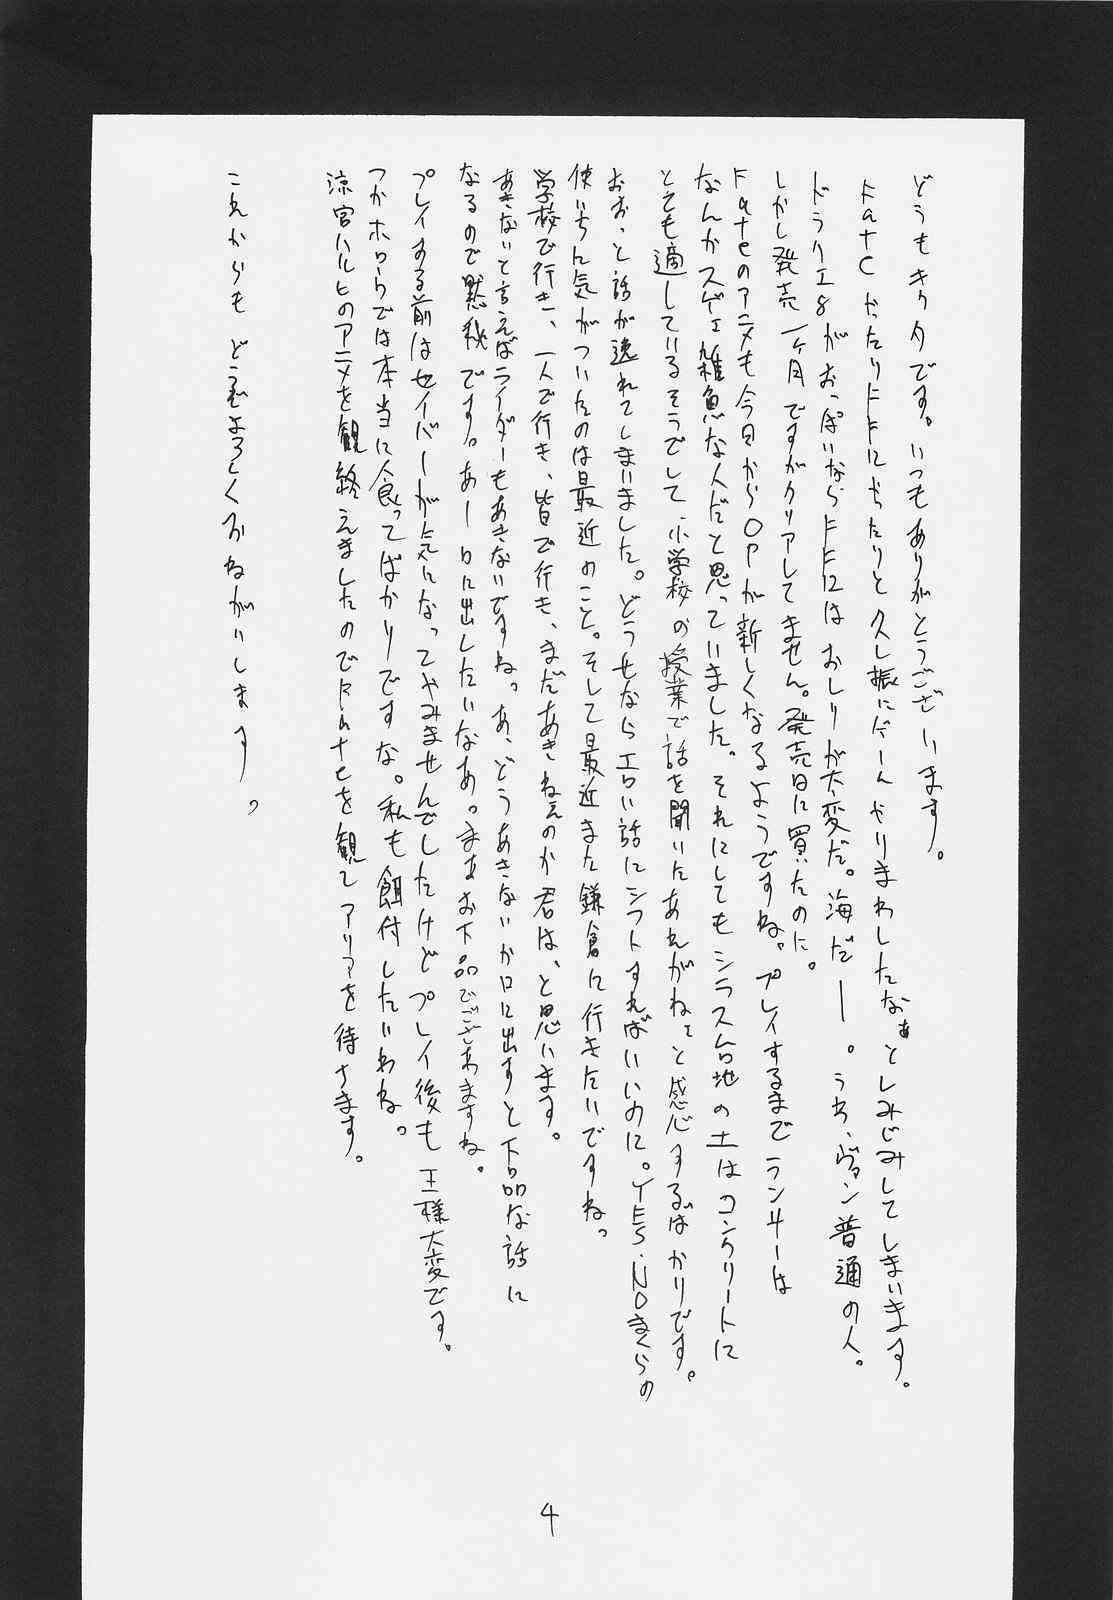 どうもキクタです。いつもありがとうございます。
Fateやったり FF12やったりと久し振りにゲームやりまわしたなぁとしみじみしてしまいます。
ドラクエ8がおっぱいならFF12はおしりが大変だ。海だー。うわ、ヴァン普通の人。
しかし発売一ヶ月ですがクリアしてません。発売日に買ったのに。
Fateのアニメも今日からOPが新しくなるようですね。プレイするまでランサーは
なんかスゲェ雑魚な人だと思っていました。それにしてもシラス台地の土はコンクリートに
とても適しているそうでして、小学校の授業で話を聞いたあれがねぇと感心するばかりです。
おおっと話が逸れてしまいました。どうせならエロい話にシフトすればいいのに。YES・NOまくらの
使いみちに気がついたのは最近のこと。そして最近また鎌倉に行きたいですねっ。
学校で行き、一人で行き、皆で行き、まだあきねぇのか君は、と思います。
あきないと言えばライダーもあきないですねっ、あ、どうあきないか口に出すと下品な話に
なるので黙秘です。あー口に出したいなあ。まあお下品でございますね。
プレイする前はセイバーが気になってやみませんでしたけどプレイ後も王様大変です。
つかホロウでは本当に食ってばかりですな。私も餌付したいわね。
涼宮ハルヒのアニメを観終えましたのでFateを観てアリアを待ちます。
これからもどうぞよろしくおねがいします。
4